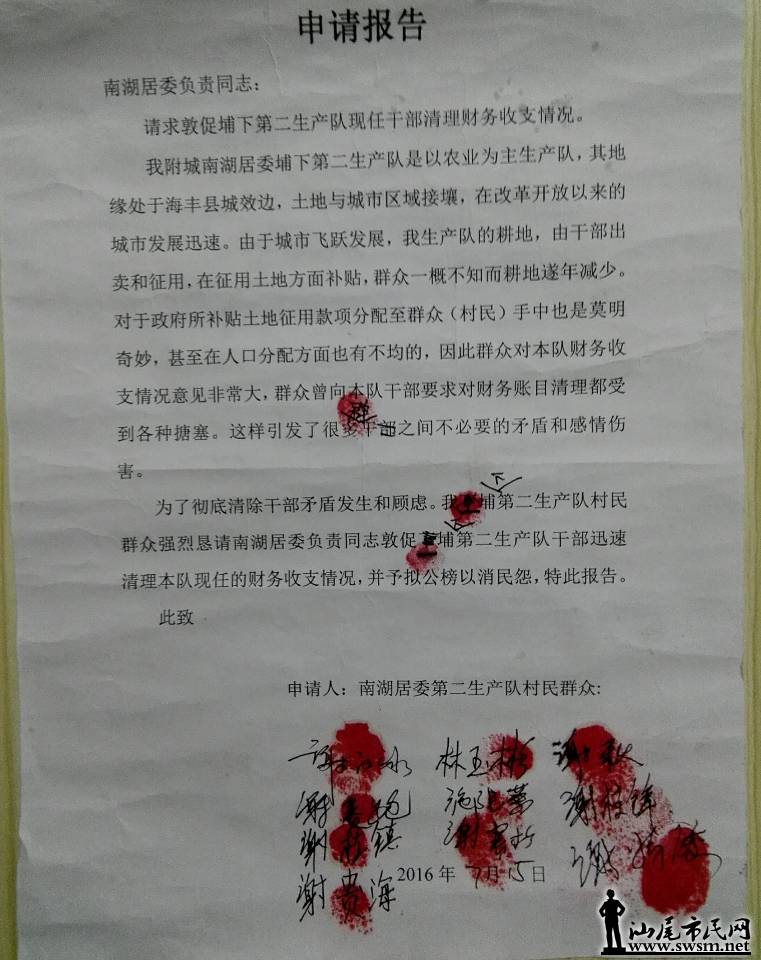 申请报告
南湖居委负责同志：
请求敦促埔下第二生产队现任干部清理财务收支情况。
我附城南湖居委埔下第二生产队是以农业为主生产队，其地
缘处于海丰县城效边，土地与城市区域接壤，在改革开放以来的
城市发展迅速。由于城市飞跃发展，我生产队的耕地，由干部出
卖和征用，在征用土地方面补贴，群众一概不知而耕地遂年减少。
对于政府所补贴土地征用款项分配至群众（村民）手中也是莫明
奇妙，甚至在人口分配方面也有不均的，因此群众对本队财务收
支情况意见非常大，群众曾向本队干部要求对财务账目清理都受
到各种搪塞。这样引发了很多干群之间不必要的矛盾和感情伤
害。
为了彻底清除干部矛盾发生和顾虑。我埔下第二生产队村民
群众强烈恳请南湖居委负责同志敦促埔下第二生产队干部迅速
清理本队现任的财务收支情况，并予拟公榜以消民怨，特此报告。
此致
申请人：南湖居委第二生产队村民群众:
林玉彬 谢秋
谢镇
谢贵海
2016 年 7月15日
汕尾市民网
www.swsm.net